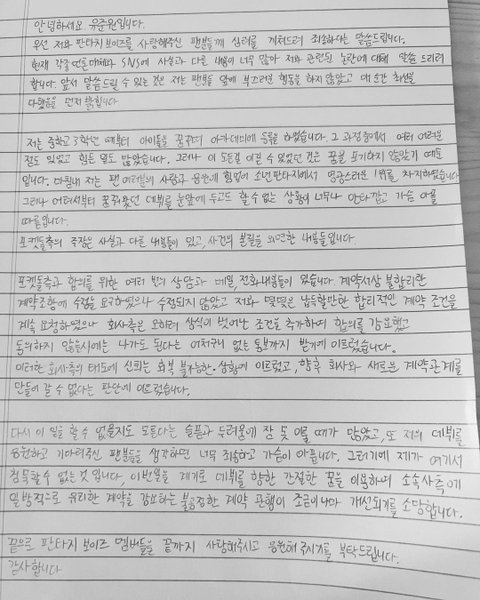 안녕하세요. 유준원입니다.
우선 저와 판타지보이즈를 사랑해주신 팬분들께 심려를 끼쳐드려 죄송하다는 말씀드립니다.
현재 각종 언론매체와 SNS에 사실과 다른 내용이 너무 많아 저와 관련된 논란에 대해 말씀 드리려
합니다. 앞서 말씀드릴 수 있는 것은 저는 팬분들 앞에 부끄러운 행동을 하지 않았고 매 순간 최선을
다했음을 먼저 밝힙니다.
저는 중학교 2학년 때부터 아이돌을 꿈꾸며 아카데미에 등록을 하였습니다. 그 과정중에서 여러 어려운
점도 있었고 힘든 일도 많았습니다. 그러나 이 모든걸 이겨낼 수 있었던 것은 꿈을 포기하지 않았기 때문
입니다. 마침내 저는 팬 여러분의 사랑과 응원에 힘입어 소년판타지에서 영광스러운 1위를 차지하였습니다
그러나 어려서부터 꿈꿔왔던 데뷔를 눈앞에 두고도 할 수 없는 상황이 너무나 안타깝고 가슴 아플
따름입니다.
포켓돌측의 주장은 사실과 다른 내용들이 있고, 사건의 본질을 외면한 내용들입니다.
포켓돌측과 합의를 위한 여러 번의 상담과 메일, 전화내용들이 있습니다. 계약서상 불합리한
계약조항에 수정을 요구하였으나 수정되지 않았고 저와 부모님은 납득할만한 합리적인 계약 조건을
계속 요청하였으나 회사측은 오히려 상식이 벗어난 조건을 추가하여 합의를 강요했고
동의하지 않을시에는 나가도 된다는 어처구니 없는 통보까지 받기에 이르렀습니다.
이러한 회사측의 태도에 신뢰는 회복 불가능한 상황에 이르렀고, 향후 회사와 새로운 계약관계를
만들어 갈 수 없다는 판단에 이르렀습니다.
다시 이 일을 할 수 없을지도 모른다는 슬픔과 두려움에 잠 못 이룰 때가 많았고, 또 저의 데뷔를
응원하고 기다려주신 팬분들을 생각하면 너무 죄송하고 가슴이 아픕니다. 그러기에 제가 여기서
침묵할 수 없는 것 입니다. 이번 일을 계기로 데뷔를 향한 간절한 꿈을 이용하여 소속사측에
일방적으로 유리한 계약을 강요하는 불공정한 계약 관행이 조금이나마 개선되기를 소망합니다.
끝으로 판타지 보이즈 멤버들을 끝까지 사랑해주시고 응원해 주시기를 부탁드립니다.
감사합니다